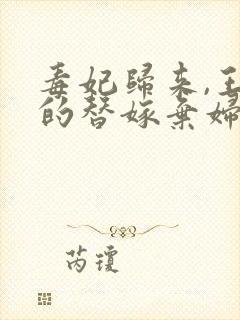 毒妃歸来,王
的替嫁棄婦
芮瓊